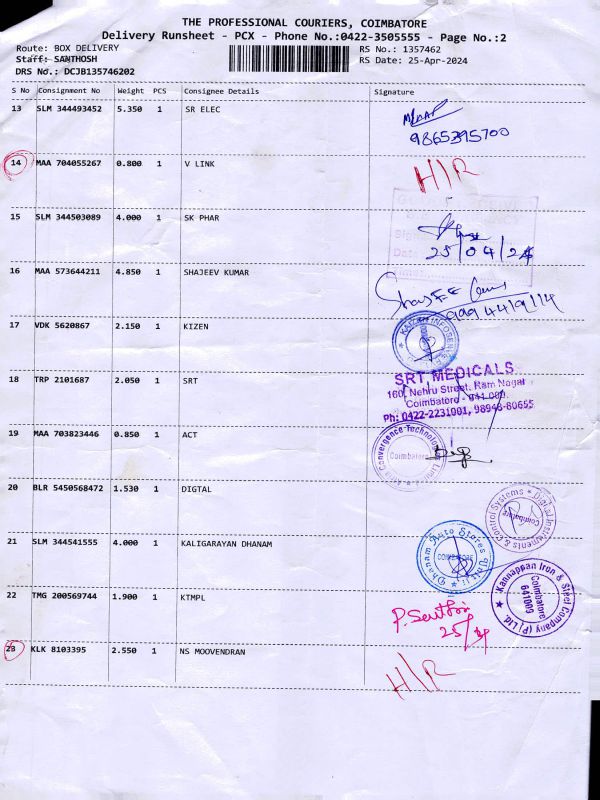 THE PROFESSIONAL COURIERS, COIMBATORE
Delivery Runsheet - PCX - Phone No.:0422-3505555 - Page No.:2
Route: BOX DELIVERY
RS No.: 1357462
Staff: SANTHOSH
RS Date: 25-Apr-2024
DRS No.: DCJB135746202
S No Consignment No Weight PCS Consignee Details Signature
13 SLM 344493452 5.350 1 SR ELEC
9865395700
14 MAA 704055267 0.800 1 V LINK H/R
15 SLM 344503089 4.000 1 SK PHAR
25/04/24
16 MAA 573644211 4.850 1 SHAJEEV KUMAR
17 VDK 5620867 2.150 1 KIZEN
18 TRP 2101687 2.050 1 SRT
SRT MEDICALS
160, Nehru Street, Ram Nagar
Coimbatore - 641 009.
Ph: 0422-2231001, 98948-80655
19 MAA 703823446 0.850 1 ACT
Convergence Technologies
Coimbatore
20 BLR 5450568472 1.530 1 DIGTAL
Digital Instruments & Control Systems
Coimbatore
21 SLM 344541555 4.000 1 KALIGARAYAN DHANAM
Dhanam Auto Stores
COIMBATORE
Kannappan Iron & Steel Company (P) Ltd.
Coimbatore
641009
22 TMG 200569744 1.900 1 KTMPL
P. Senthil
23 KLK 8103395 2.550 1 NS MOOVENDRAN H/R